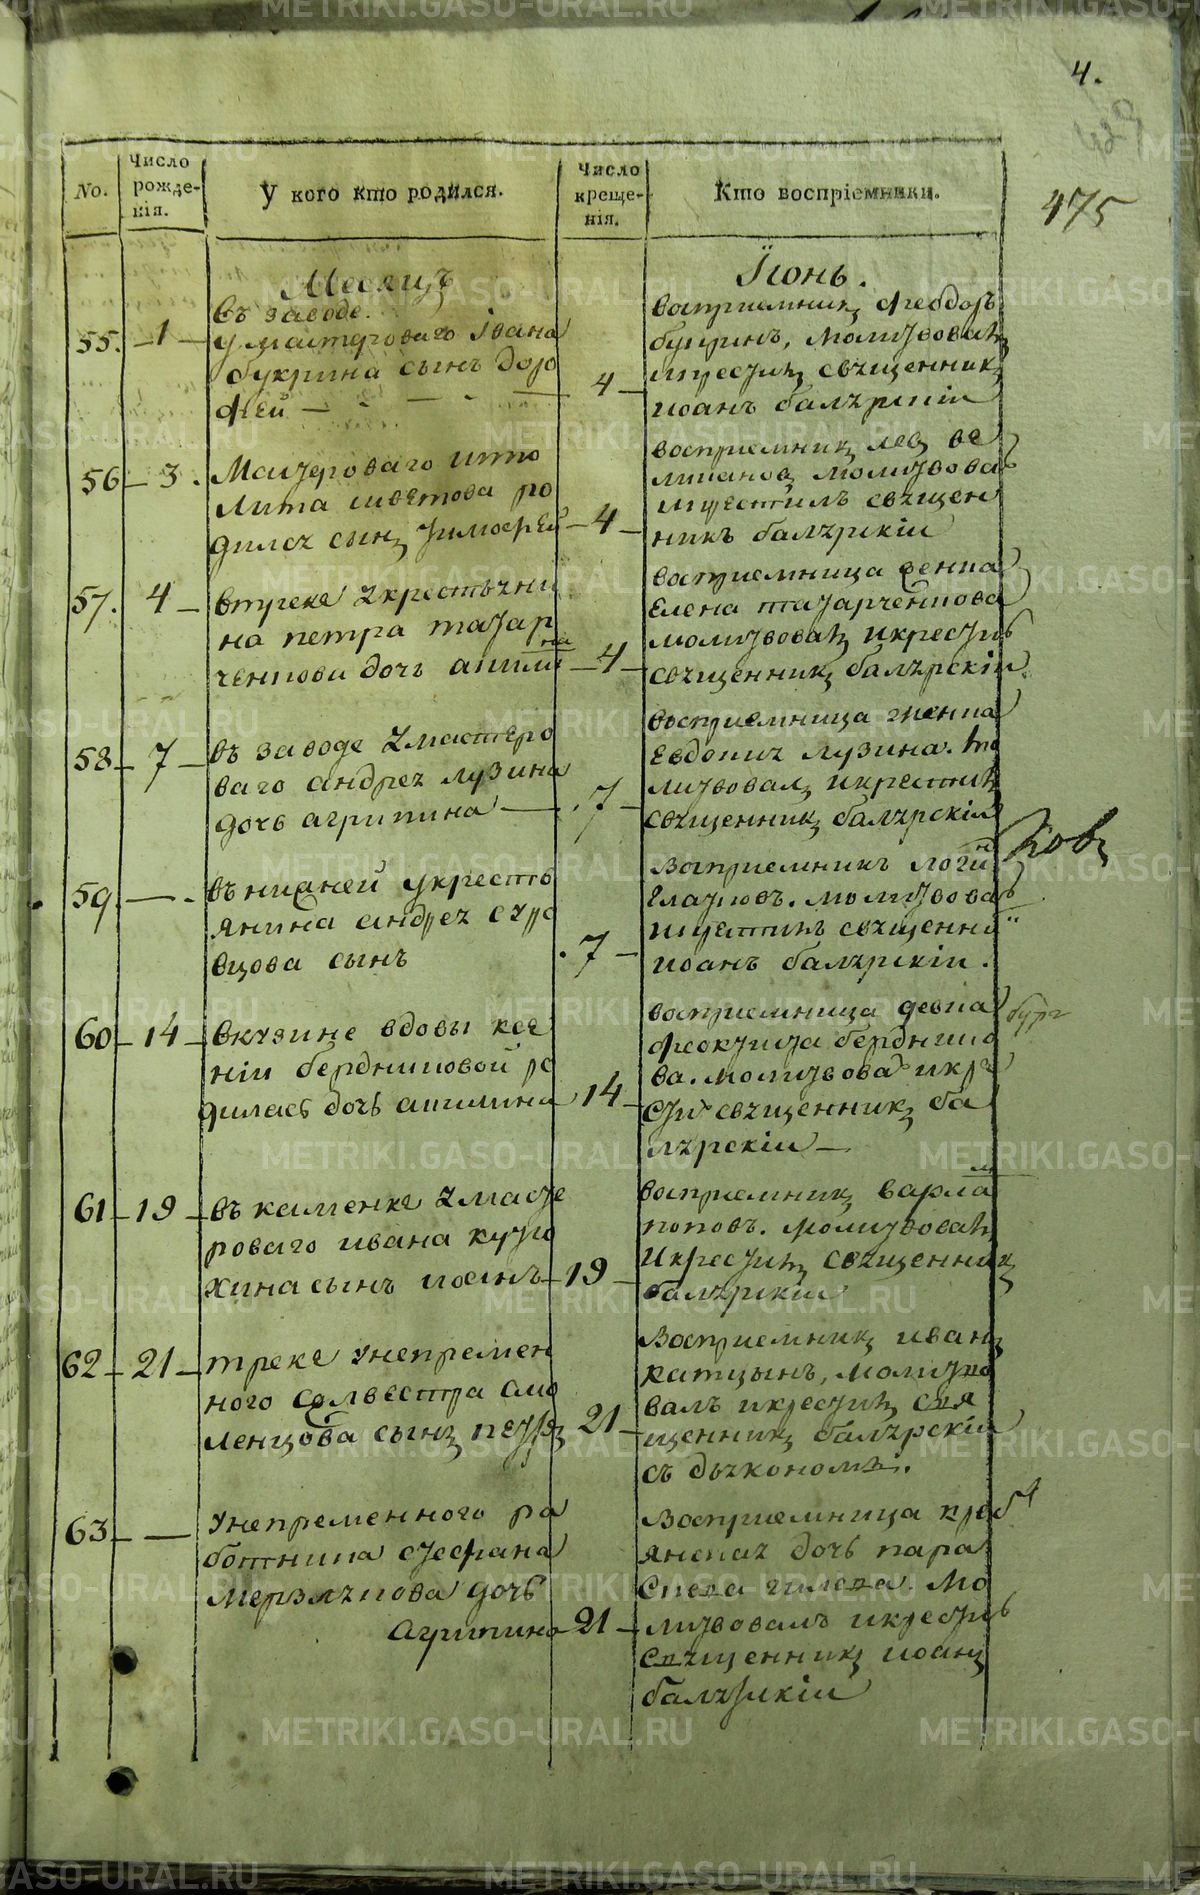 METRIKI.GASO-URAL.RU
4.
475
No.
Число рожде-нія.
У кого кто родился.
Число креще-нія.
Кто воспріемники.
Месяцъ
Іюнь.
55. 1
въ заводе.
умастероваго Івана
букрина сынъ доро
фей
4
восприемникъ феодоръ
букринъ, молитвовалъ
икрестилъ священникъ
иоанъ балярскіи
56 3.
Мастероваго ипо
лита шветова ро
дилсь сынъ тимофей
4
восприемникъ левъ ве
молитвовал
икрестилъ священ
никъ балярскіи
57. 4
втреке укрестьяни
на петра татар
ченкова дочь акили
на
4
восприемница женка
Елена татарченкова
молитвовалъ икрестилъ
священникъ балярскіи.
58 7
въ заводе умастеро
ваго андрея лузина
дочь агрипина
7
восприемница женка
Евдокия лузина. мо
литвовалъ икрестилъ
священникъ балярскіи
59.
въ укресть
янина андрея сурс
вцова сынъ
7
восприемникъ логин
молитвовал
икрестилъ священни
иоанъ балярскіи.
60 14
вкузине вдовы ксе
ніи бердниковой ро
дилась дочь акилина
14
восприемница девка
феоктиста бердшико
ва. молитвовал икре
стил священникъ ба
лярскіи
61 19
въ каменке умасте
роваго ивана кузю
хина сынъ иоанъ
19
восприемникъ варлам
поповъ. молитвовалъ
икрестилъ священникъ
балярскіи
62 21
треке унепремен
ного селвестра смо
ленцова сынъ петръ
21
восприемникъ иванъ
катцынъ, молитво
валъ икрестилъ свя
щенникъ балярскіи
съ дьякономъ.
63
унепременного ра
ботника стефана
мерзлякова дочь
агрипина
21
восприемница крест
янская дочь пара
скева гилева. мо
литвовалъ икрестилъ
священникъ иоанъ
балярскіи